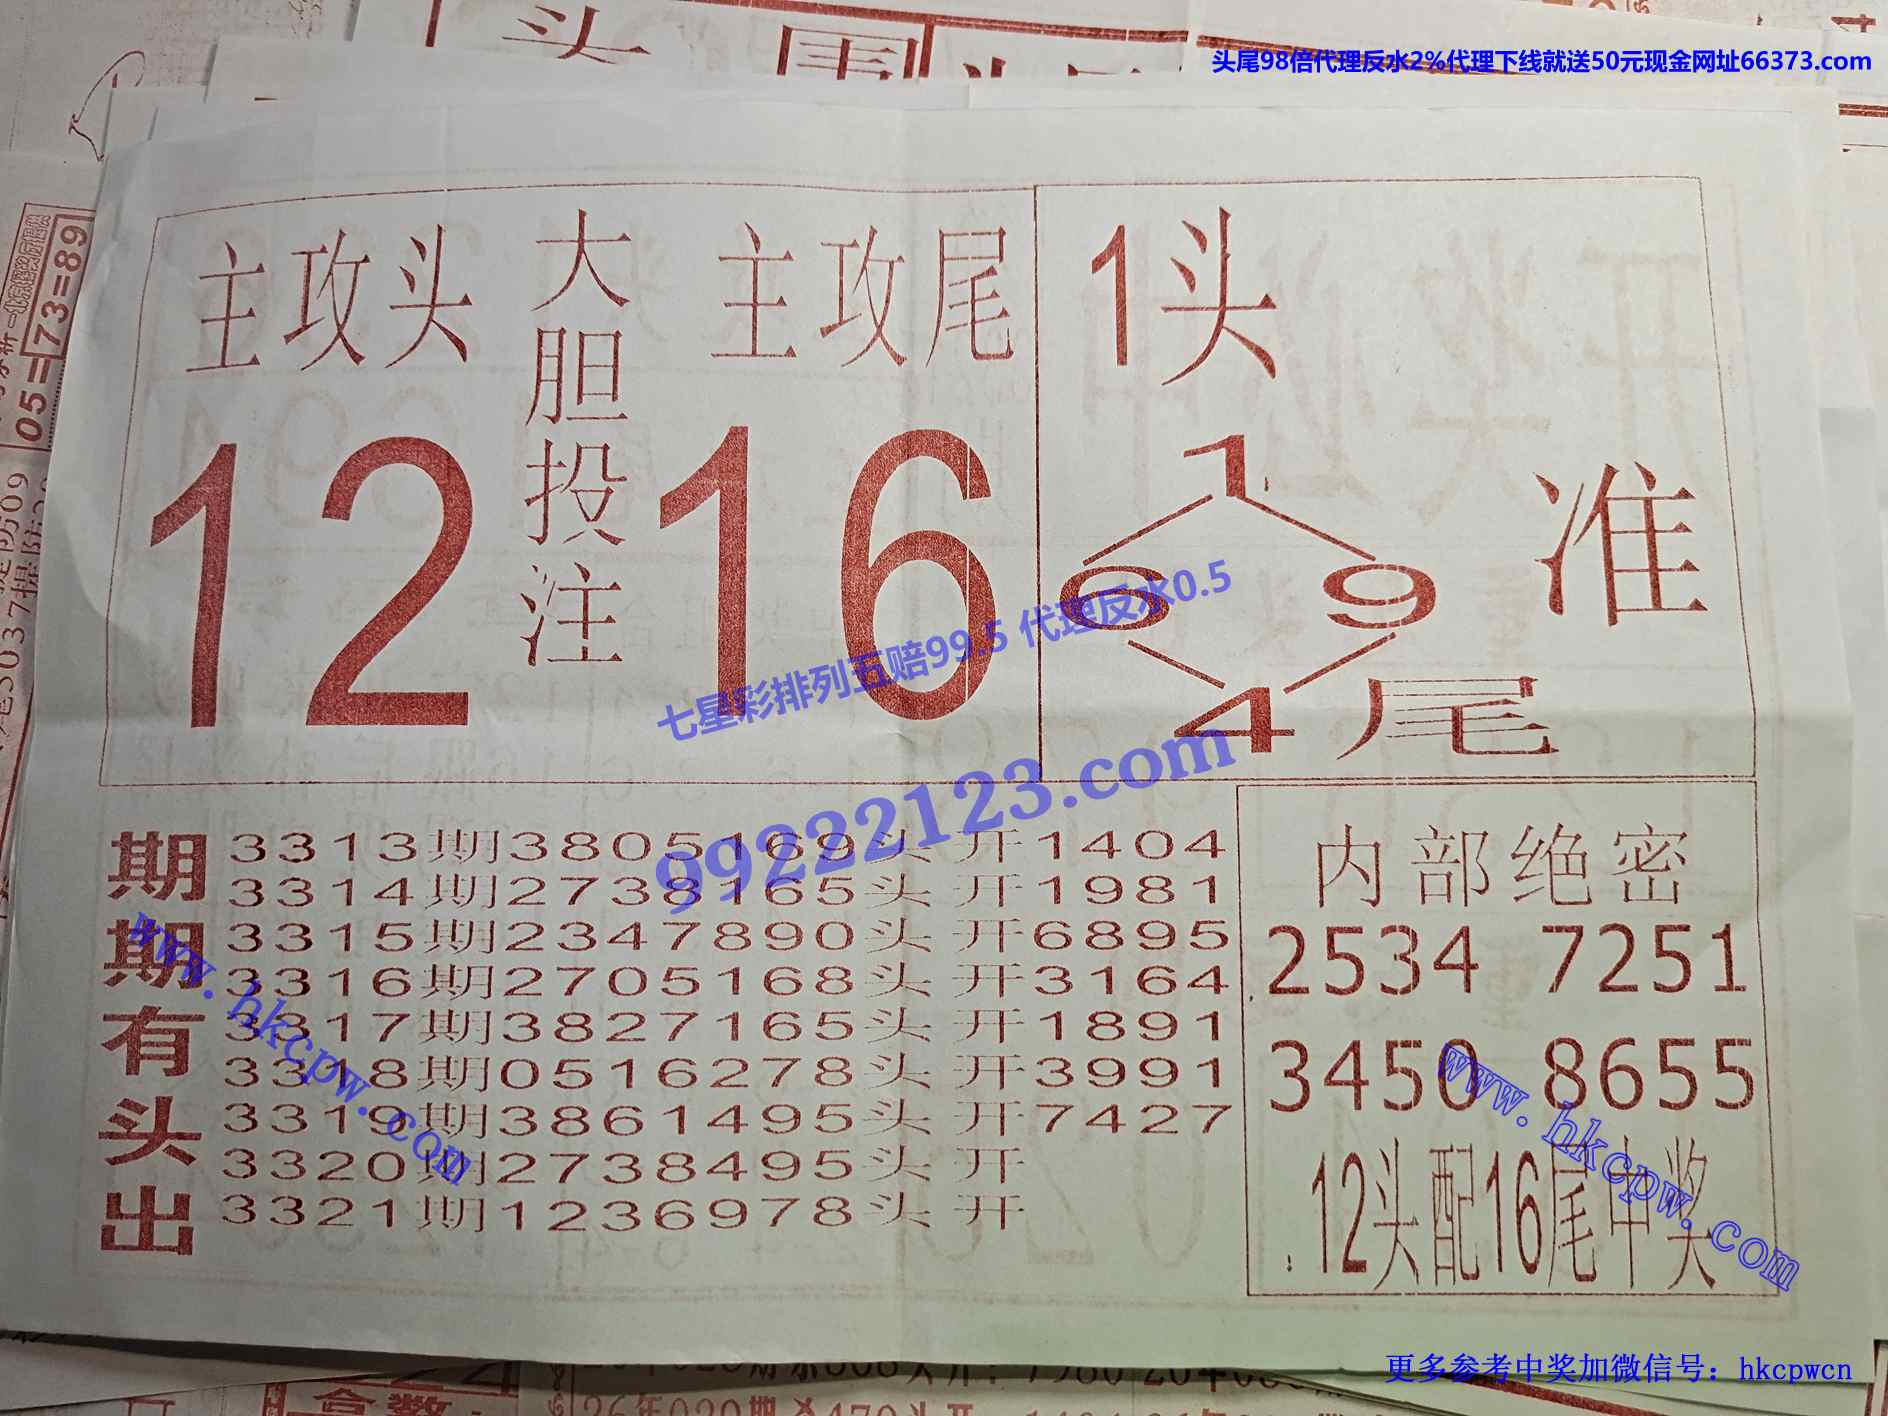 头尾98倍代理反水2%代理下线就送50元现金网址66373.com
05=
73=89
主攻头
大胆投注
主攻尾
12
16
1头
1
6
9
4尾
准
七星彩排列五赔99.5 代理反水0.5
99222123.com
期期有头出
3313期3805169头 开1404
3314期2738165头 开1981
3315期2347890头 开6895
3316期2705168头 开3164
3317期3827165头 开1891
3318期0516278头 开3991
3319期3861495头 开7427
3320期2738495头 开
3321期1236978头 开
www.hkcpw.com
内部绝密
2534 7251
3450 8655
12头配16尾中奖
www.hkcpw.com
更多参考中奖加微信号：hkcpwcn